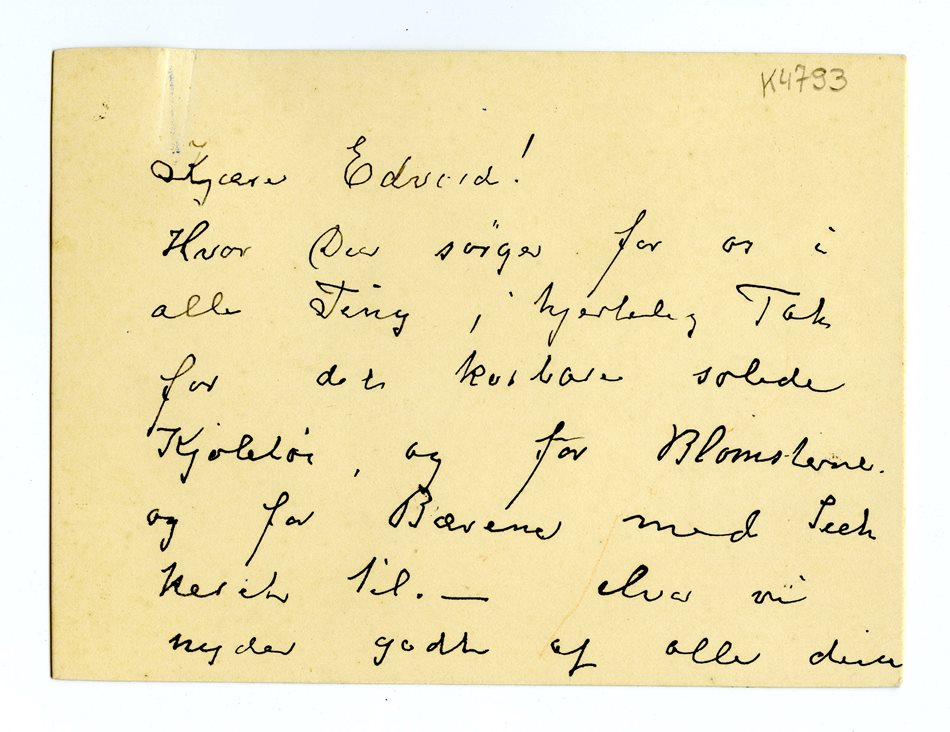 K4793
Kjære Edvard!
Hvor Du sørger for os i
alle Ting, hjertelig Tak
for det kostbare solide
Kjoletøi, og for Blomsterne.
og for Bærene med
til. — Hvor vi
nyder godt af alle dine